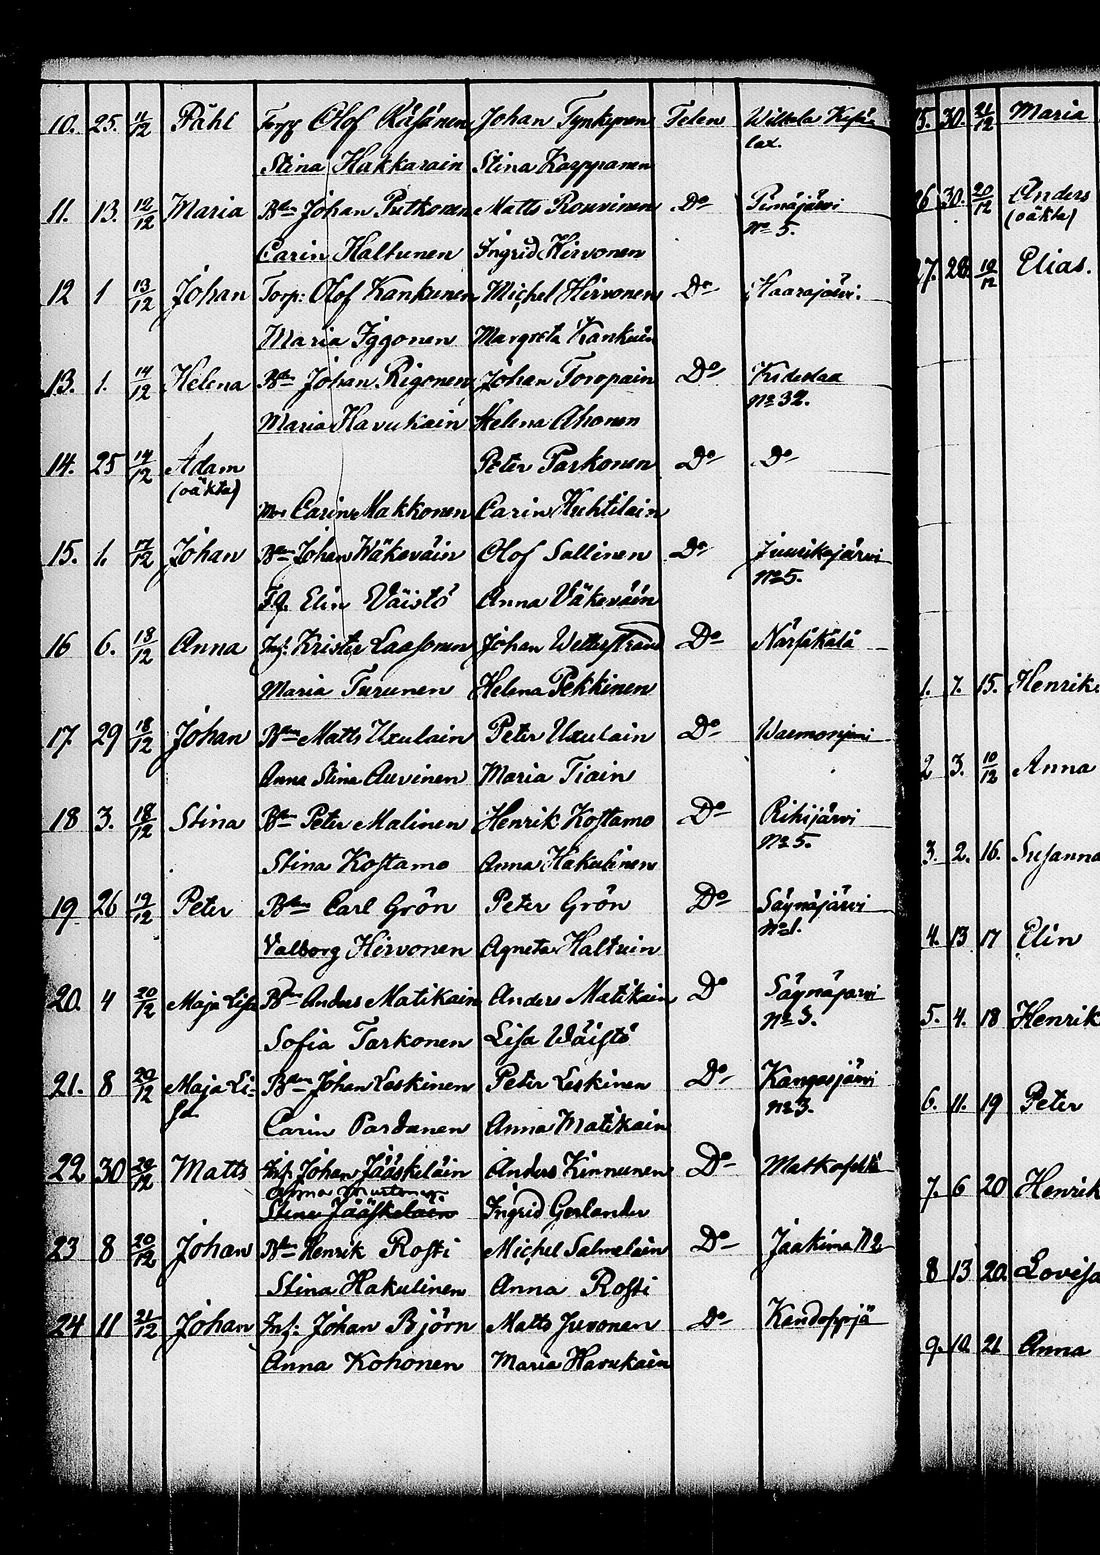 10. 25. 11/12 Påhl Torp Olof Räsänen Johan Tynkynen Felen Wiltola Kesä-
lax.
Stina Hakkarain Stina Karppanen
11. 13. 12/12 Maria Bdn Johan Putkonen Matts Rouvinen Do Pimäjärvi
No 5.
Carin Haltunen Ingrid Hirvonen
12 1 13/12 Johan Torp: Olof Kankunen Michel Hirvonen Do Haarajärvi
Maria Iggonen Margreta Kankuin
13. 1. 14/12 Helena Bdn Johan Rigonen Johan Toropain Do Kideslax
No 32.
Maria Havukain Helena Ahonen
14. 25 14/12 Adam Peter Parkonen Do Do
(oäkta)
Carin Makkonen Carin Huhtilain
15. 1. 17/12 Johan Bdn Johan Wäkeväin Olof Sallinen Do Juurikajärvi
No 5.
Elin Väistö Anna Väkeväin
16 6. 18/12 Anna Inh: Krister Laasonen Johan Wetterstrand Do Närsäkälä
Maria Turunen Helena Pekkinen
17. 29 18/12 Johan Bdn Matts Uxulain Peter Uxulain Do
Anna Stina Auvinen Maria Tiain
18 3. 18/12 Stina Bdn Peter Malinen Henrik Kostamo Do Rihijärvi
No 5.
Stina Kostamo Anna Hakulinen
19 26 19/12 Peter Bdn Carl Grön Peter Grön Do Säynäjärvi
No 1.
Valborg Hirvonen Agneta Haltuin
20. 4 20/12 Maja Lisa Bdn Anders Matikain Anders Matikain Do Säynäjärvi
No 3.
Sofia Tarkonen Lisa Wäistö
21. 8 20/12 Maja Li- Bdn Johan Leskinen Peter Leskinen Do Kangasjärvi
sa No 3.
Carin Pardanen Anna Matikain
22 30 20/12 Matts Inh: Johan Jääskeläin Anders Kinnunen Do Matkaselkä
Anna
Stina Jääskeläin Ingrid Gerlander
23 8 20/12 Johan Bdn Henrik Rosti Michel Salmelain Do Jaakima N2
Stina Hakulinen Anna Rosti
24 11 21/12 Johan Inh: Johan Björn Matts Juvonen Do
Anna Kohonen Maria Havukain
25. 30. 21/12 Maria
26 30. 20/12 Anders
(oäkta)
27. 28. 19/12 Elias.
1. 7. 15. Henrik
2 3. 10/12 Anna
3. 2. 16. Susanna
4. 13 17 Elin
5. 4. 18 Henrik
6. 11. 19 Peter
7. 6 20 Henrik
8 13 20. Lovisa
9. 10. 21 Anna